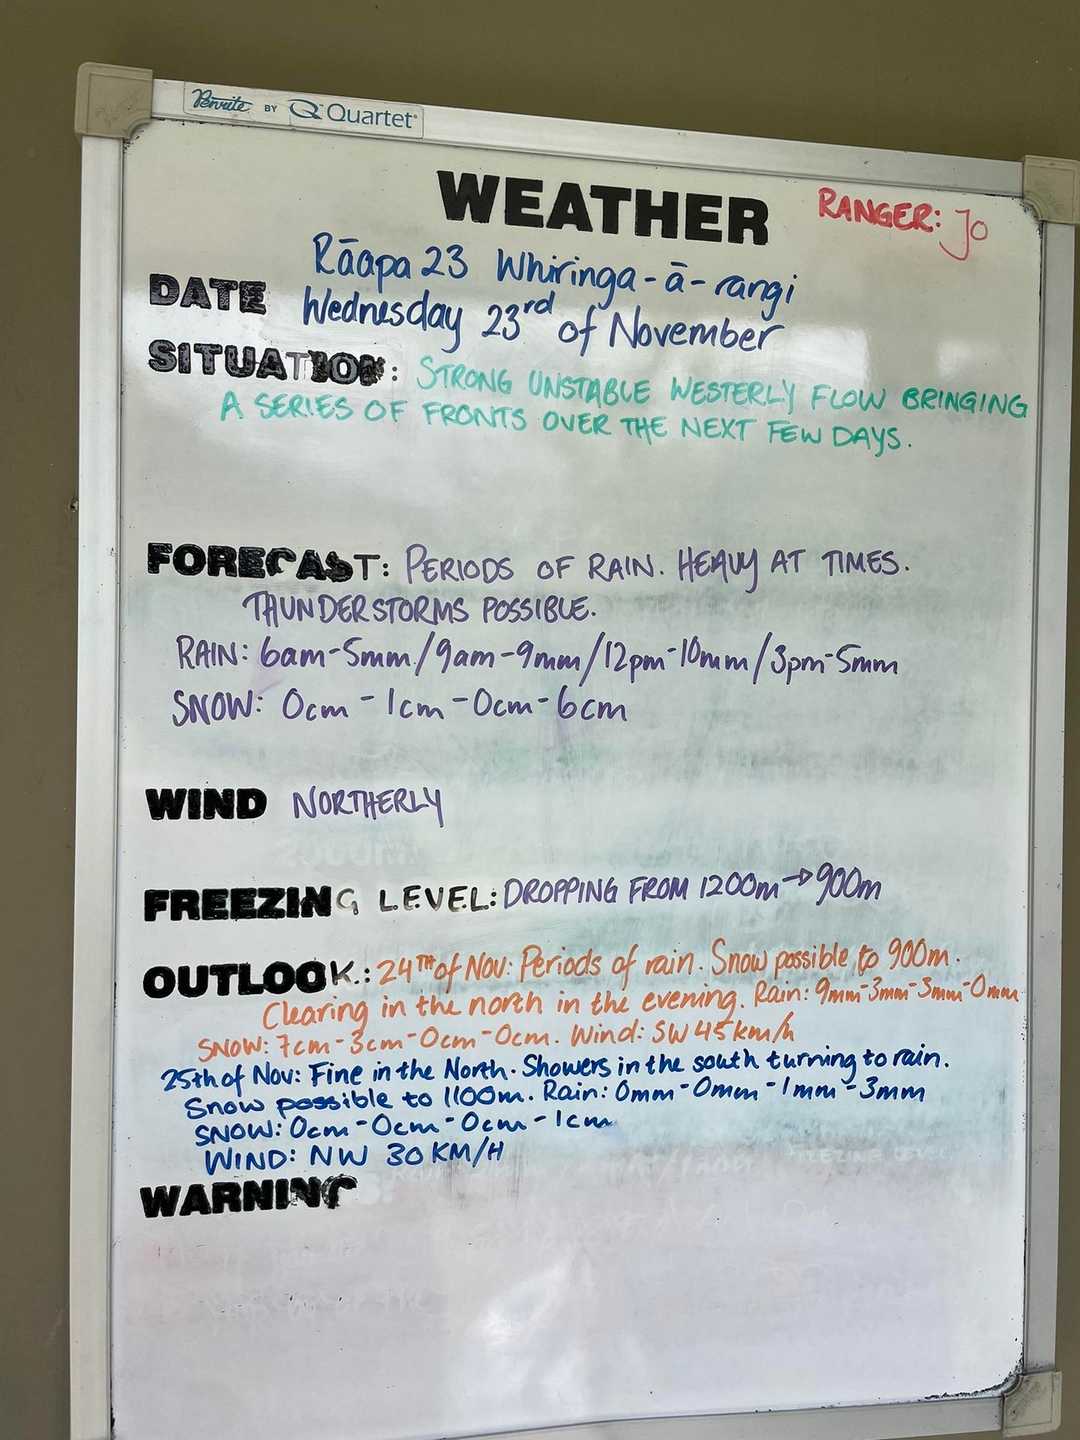 Penrite BY Quartet
WEATHER
RANGER: Jo
Rāapa 23 Whiringa-ā-rangi
DATE Wednesday 23rd of November
SITUATION: STRONG UNSTABLE WESTERLY FLOW BRINGING
A SERIES OF FRONTS OVER THE NEXT FEW DAYS.
FORECAST: PERIODS OF RAIN. HEAVY AT TIMES.
THUNDERSTORMS POSSIBLE.
RAIN: 6am-5mm/9am-9mm/12pm-10mm/3pm-5mm
SNOW: 0cm-1cm-0cm-6cm
WIND NORTHERLY
FREEZING LEVEL: DROPPING FROM 1200m→900m
OUTLOOK.: 24TH of NOV: Periods of rain. Snow possible to 900m.
Clearing in the north in the evening. Rain: 9mm-3mm-3mm-0mm
SNOW: 7cm-3cm-0cm-0cm. Wind: SW 45km/h
25th of Nov: Fine in the North. Showers in the south turning to rain.
Snow possible to 1100m. Rain: 0mm-0mm-1mm-3mm
SNOW: 0cm-0cm-0cm-1cm
WIND: NW 30 KM/H
WARNING